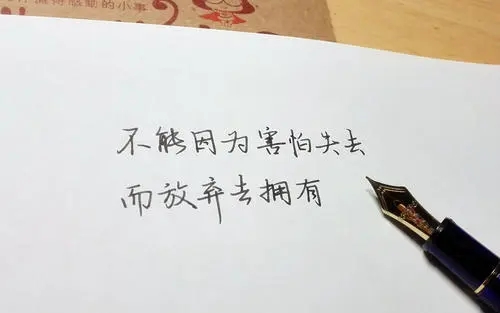 值得感动的小事
不能因为害怕失去
而放弃去拥有